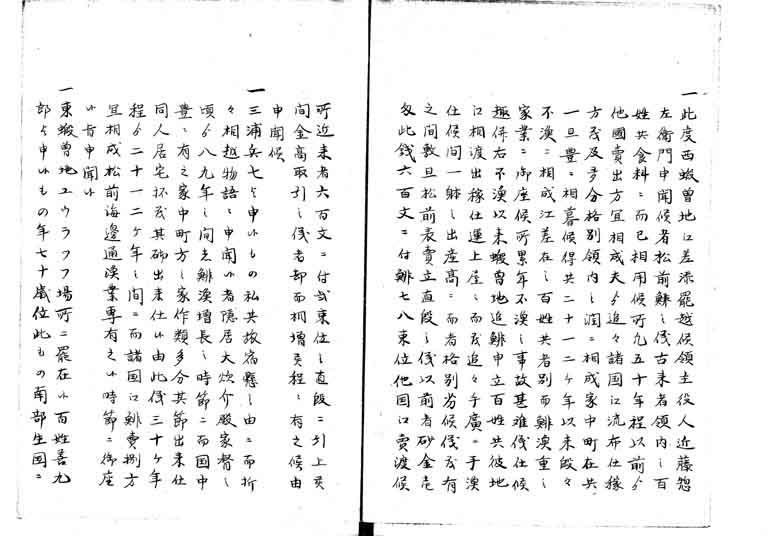 一此度西蝦曽地江差添罷越候領主役人近藤惣
左衛門申聞候者松前鯡之儀古来者領内之百
姓共食料ニ而已相用候所九五十年程以前ゟ
他國賣出方宜相成夫ゟ追々諸国江流布仕稼
方茂及多分格別領内之潤ニ相成家中町在共
一旦豊ニ相暮候得共二十一二ヶ年以来段々
不漁ニ相成江差在之百姓共者別而鯡漁重之
家業ニ御座候所累年不漁之事故甚難儀仕候
趣併右不漁以来蝦曽地追鯡申立百姓共彼地
江相渡出稼仕運上屋ニ而茂追々手廣ニ手漁
仕候間一躰之出産高ニ而者格別劣候儀茂有
之間敷旦松前表賣立直段之儀以前者砂金壱
匁此銭六百文ニ付鯡七八束位他国江賣渡候
所近来者六百文ニ付弐束位之直段ニ引上文
間金高取引之儀者却而相増文程ニ有之候由
申聞候
一三浦兵七ゟ申いもの私共旅宿懸之由ニ而折
々相越物語ニ申聞い者隠居大炊介殿家督之
頃ゟ八九年之間文鯡漁増長之時節ニ而国中
豊ニ有之家中町方之家作類多分其節出来仕
同人居宅抔茂其砌出来仕い由此儀三十ヶ年
程ゟ二十一二ヶ年之間ニ而諸国江鯡賣捌方
宜相成松前海邊通漁業専有之い時節ニ御座
い旨申聞い
一東蝦曽地ユウラフフ場所ニ罷在い百姓善九
郎ゟ申いもの年七十歳位此もの南部生国ニ